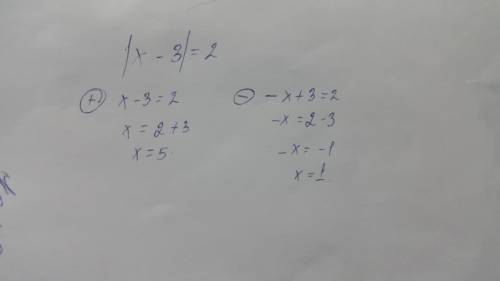 |x - 3| = 2
⊕ x - 3 = 2
x = 2 + 3
x = 5
⊖ - x + 3 = 2
-x = 2 - 3
-x = -1
x = 1